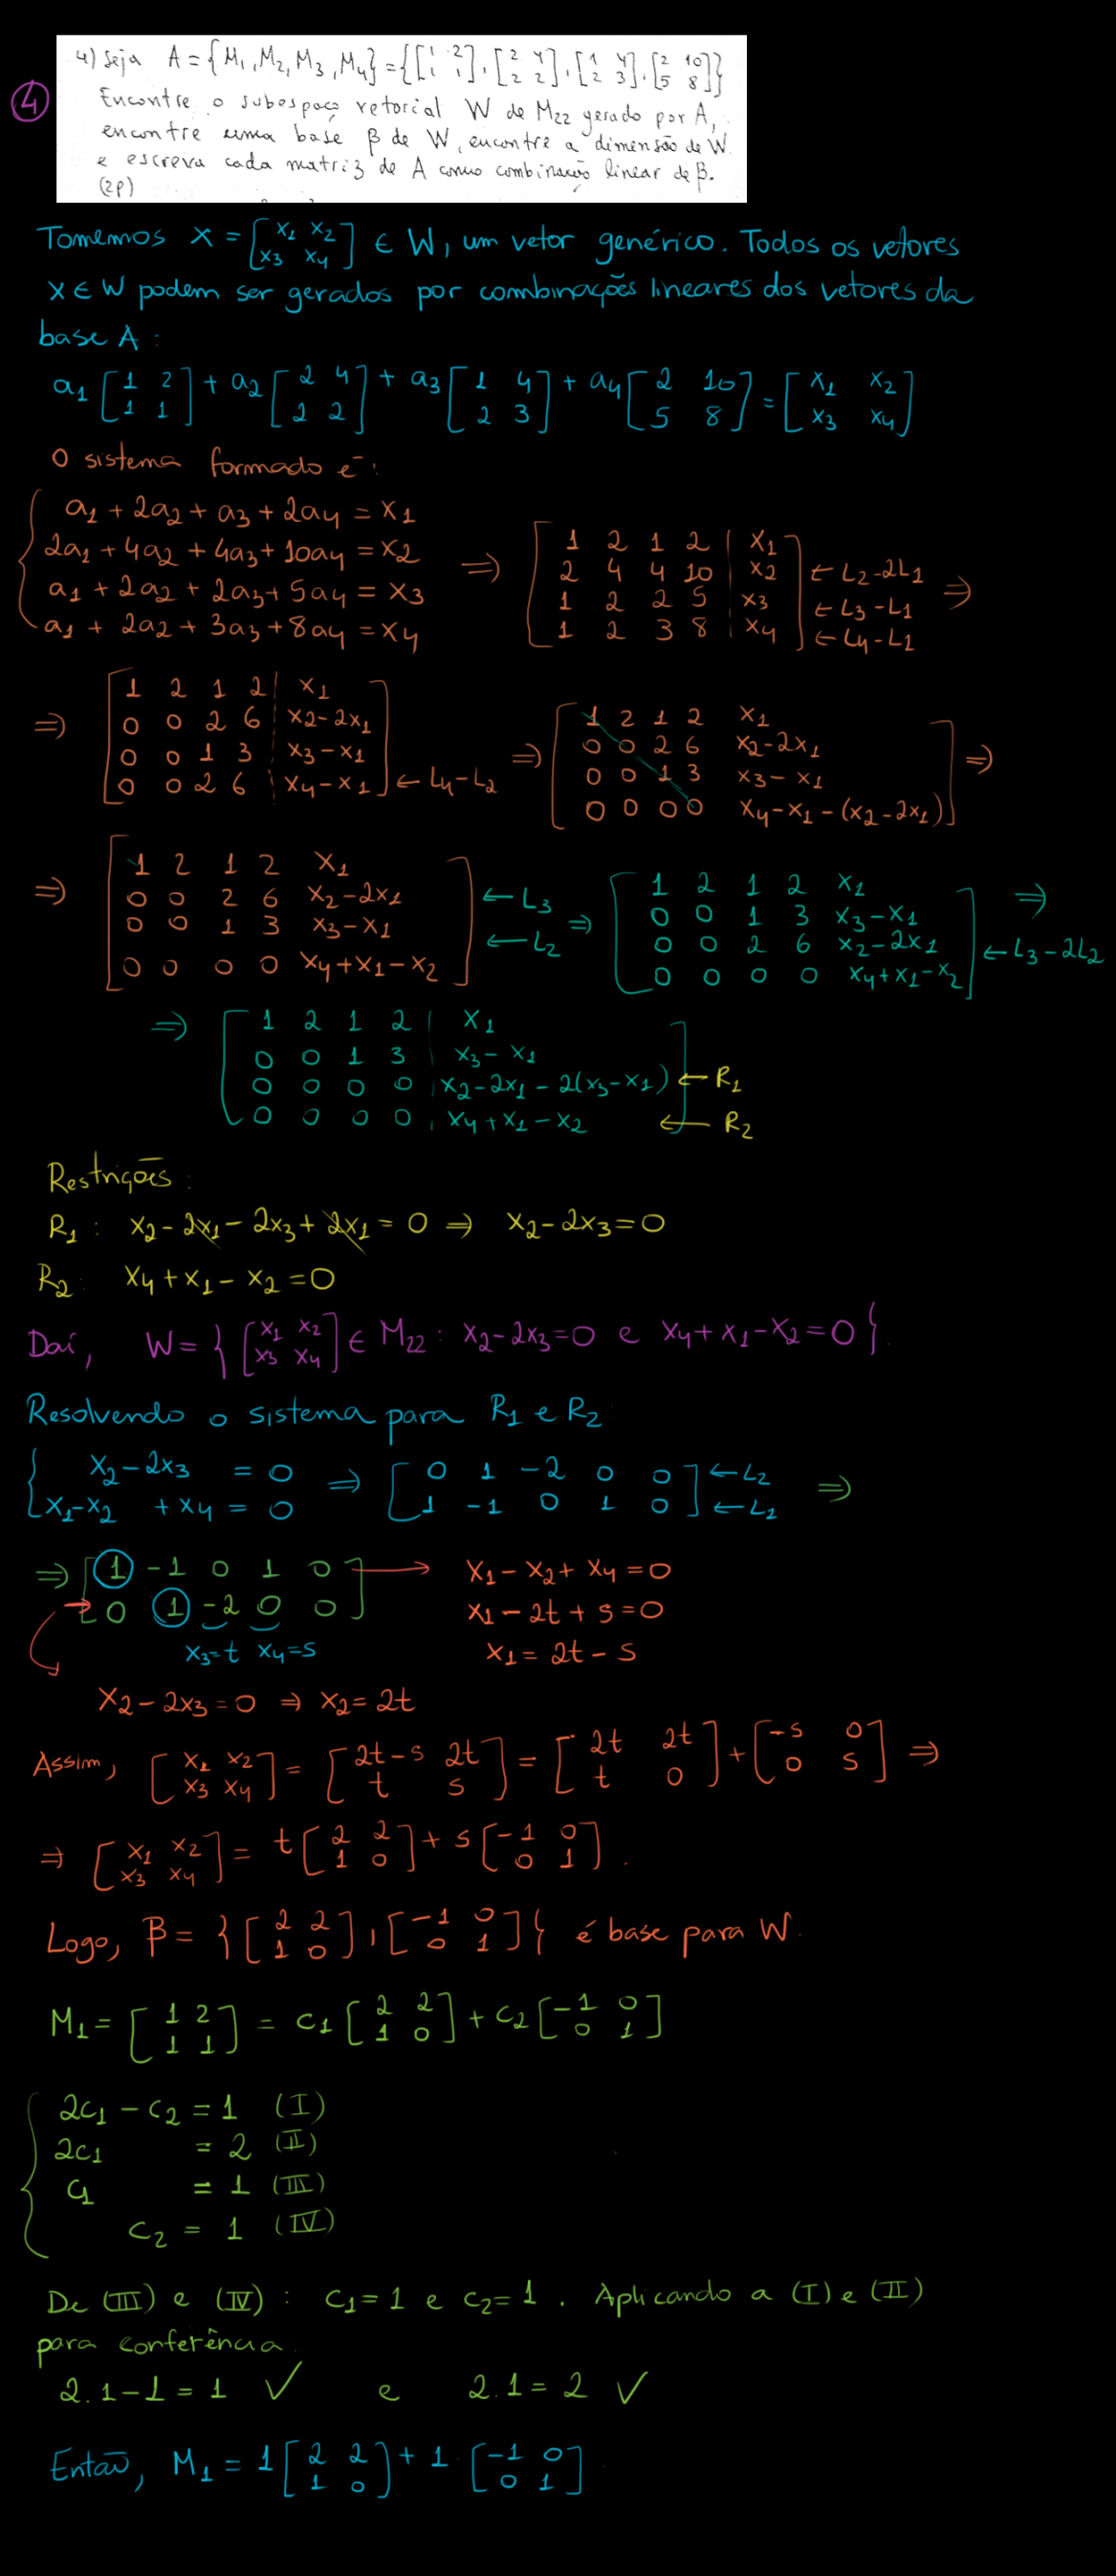 4) Seja A = {M₁, M₂, M₃, M₄} = {[1 2; 1 1], [2 4; 2 2], [1 4; 2 3], [2 10; 5 8]}
④ Encontre o subespaço vetorial W de M₂₂ gerado por A,
encontre uma base β de W, encontre a dimensão de W
e escreva cada matriz de A como combinação linear de β.
(2p)
Tomemos X = [x₁ x₂; x₃ x₄] ∈ W, um vetor genérico. Todos os vetores
X ∈ W podem ser gerados por combinações lineares dos vetores da
base A:
a₁ [1 2; 1 1] + a₂ [2 4; 2 2] + a₃ [1 4; 2 3] + a₄ [2 10; 5 8] = [x₁ x₂; x₃ x₄]
O sistema formado é:
a₁ + 2a₂ + a₃ + 2a₄ = x₁
2a₁ + 4a₂ + 4a₃ + 10a₄ = x₂
a₁ + 2a₂ + 2a₃ + 5a₄ = x₃
a₁ + 2a₂ + 3a₃ + 8a₄ = x₄
⇒ 1 2 1 2 | x₁
2 4 4 10 | x₂ ← L₂-2L₁ ⇒
1 2 2 5 | x₃ ← L₃-L₁
1 2 3 8 | x₄ ← L₄-L₁
1 2 1 2 | x₁
⇒ 0 0 2 6 | x₂-2x₁
0 0 1 3 | x₃-x₁
0 0 2 6 | x₄-x₁ ← L₄-L₂
1 2 1 2 x₁
⇒ 0 0 2 6 x₂-2x₁ ⇒
0 0 1 3 x₃-x₁
0 0 0 0 x₄-x₁-(x₂-2x₁)
1 2 1 2 x₁
⇒ 0 0 2 6 x₂-2x₁ ← L₃
0 0 1 3 x₃-x₁ ← L₂
0 0 0 0 x₄+x₁-x₂
1 2 1 2 x₁ ⇒
⇒ 0 0 1 3 x₃-x₁
0 0 2 6 x₂-2x₁ ← L₃-2L₂
0 0 0 0 x₄+x₁-x₂
⇒ 1 2 1 2 | x₁
0 0 1 3 x₃-x₁
0 0 0 0 | x₂-2x₁-2(x₃-x₁) ← R₁
0 0 0 0 | x₄+x₁-x₂ ← R₂
Restrições:
R₁: x₂-2x₁-2x₃+2x₁ = 0 ⇒ x₂-2x₃=0
R₂: x₄+x₁-x₂=0
Daí, W = {[x₁ x₂; x₃ x₄] ∈ M₂₂: x₂-2x₃=0 e x₄+x₁-x₂=0}.
Resolvendo o sistema para R₁ e R₂
x₂-2x₃ = 0 ⇒ [0 1 -2 0 0 ← L₂ ⇒
x₁-x₂ + x₄ = 0 1 -1 0 1 0] ← L₁
⇒ [1 -1 0 1 0 → x₁-x₂+x₄=0
0 1 -2 0 0] x₁-2t+s=0
x₃=t x₄=s x₁=2t-s
x₂-2x₃=0 ⇒ x₂=2t
Assim, [x₁ x₂; x₃ x₄] = [2t-s 2t; t s] = [2t 2t; t 0] + [-s 0; 0 s] ⇒
⇒ [x₁ x₂; x₃ x₄] = t [2 2; 1 0] + s [-1 0; 0 1].
Logo, β = {[2 2; 1 0], [-1 0; 0 1]} é base para W.
M₁ = [1 2; 1 1] = c₁ [2 2; 1 0] + c₂ [-1 0; 0 1]
2c₁ - c₂ = 1 (I)
2c₁ = 2 (II)
c₁ = 1 (III)
c₂ = 1 (IV)
De (III) e (IV): c₁=1 e c₂=1. Aplicando a (I) e (II)
para conferência:
2.1-1=1 ✓ e 2.1=2 ✓
Então, M₁ = 1 [2 2; 1 0] + 1. [-1 0; 0 1]